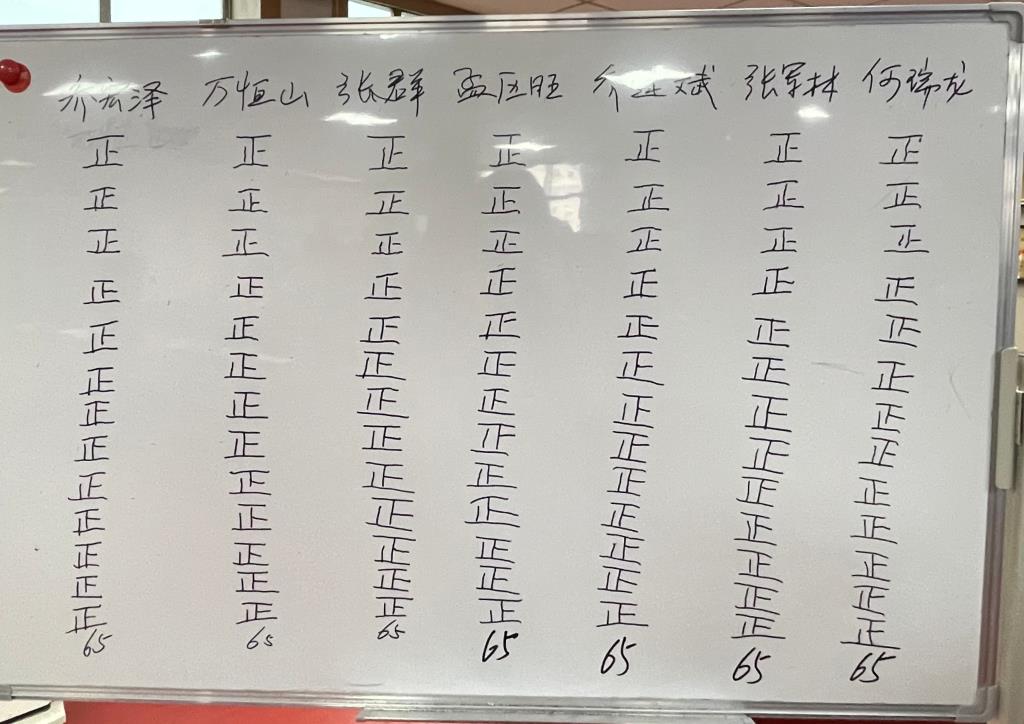 乔宏泽 万恒山 张群 孟匡旺 乔建斌 张军林 何瑞龙
正 正 正 正 正 正 正
正 正 正 正 正 正 正
正 正 正 正 正 正 正
正 正 正 正 正 正 正
正 正 正 正 正 正 正
正 正 正 正 正 正 正
正 正 正 正 正 正 正
正 正 正 正 正 正 正
正 正 正 正 正 正 正
正 正 正 正 正 正 正
正 正 正 正 正 正 正
正 正 正 正 正 正 正
正 正 正 正 正 正 正
65 65 65 65 65 65 65